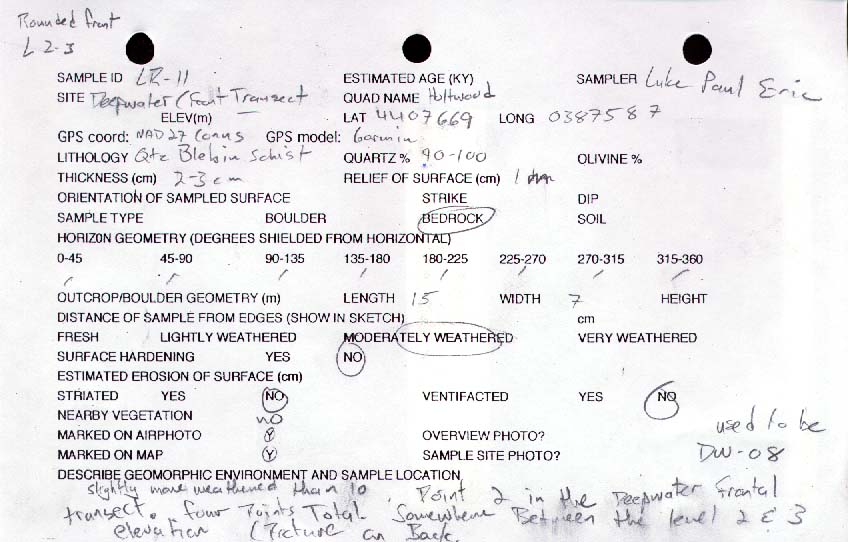 Rounded front
L 2-3
SAMPLE ID LR-11 ESTIMATED AGE (KY) SAMPLER Luke Paul Eric
SITE Deepwater (Front Transect QUAD NAME Holtwood
ELEV(m) LAT 4407669 LONG 0387587
GPS coord: NAD27 Conus GPS model: Garmin
LITHOLOGY Qtz Bleb in Schist QUARTZ % 90-100 OLIVINE %
THICKNESS (cm) 2-3 cm RELIEF OF SURFACE (cm) 1
ORIENTATION OF SAMPLED SURFACE STRIKE DIP
SAMPLE TYPE BOULDER BEDROCK SOIL
HORIZON GEOMETRY (DEGREES SHIELDED FROM HORIZONTAL)
0-45 45-90 90-135 135-180 180-225 225-270 270-315 315-360
/ / / / / / / /
OUTCROP/BOULDER GEOMETRY (m) LENGTH 15 WIDTH 7 HEIGHT
DISTANCE OF SAMPLE FROM EDGES (SHOW IN SKETCH) cm
FRESH LIGHTLY WEATHERED MODERATELY WEATHERED VERY WEATHERED
SURFACE HARDENING YES NO
ESTIMATED EROSION OF SURFACE (cm)
STRIATED YES NO VENTIFACTED YES NO
NEARBY VEGETATION no
MARKED ON AIRPHOTO Y OVERVIEW PHOTO?
MARKED ON MAP Y SAMPLE SITE PHOTO?
used to be
DW-08
DESCRIBE GEOMORPHIC ENVIRONMENT AND SAMPLE LOCATION
slightly more weathered than 10 Point 2 in the Deepwater Frontal
transect. four Points Total. Somewhere Between the level 2 & 3
elevation (Picture on Back.